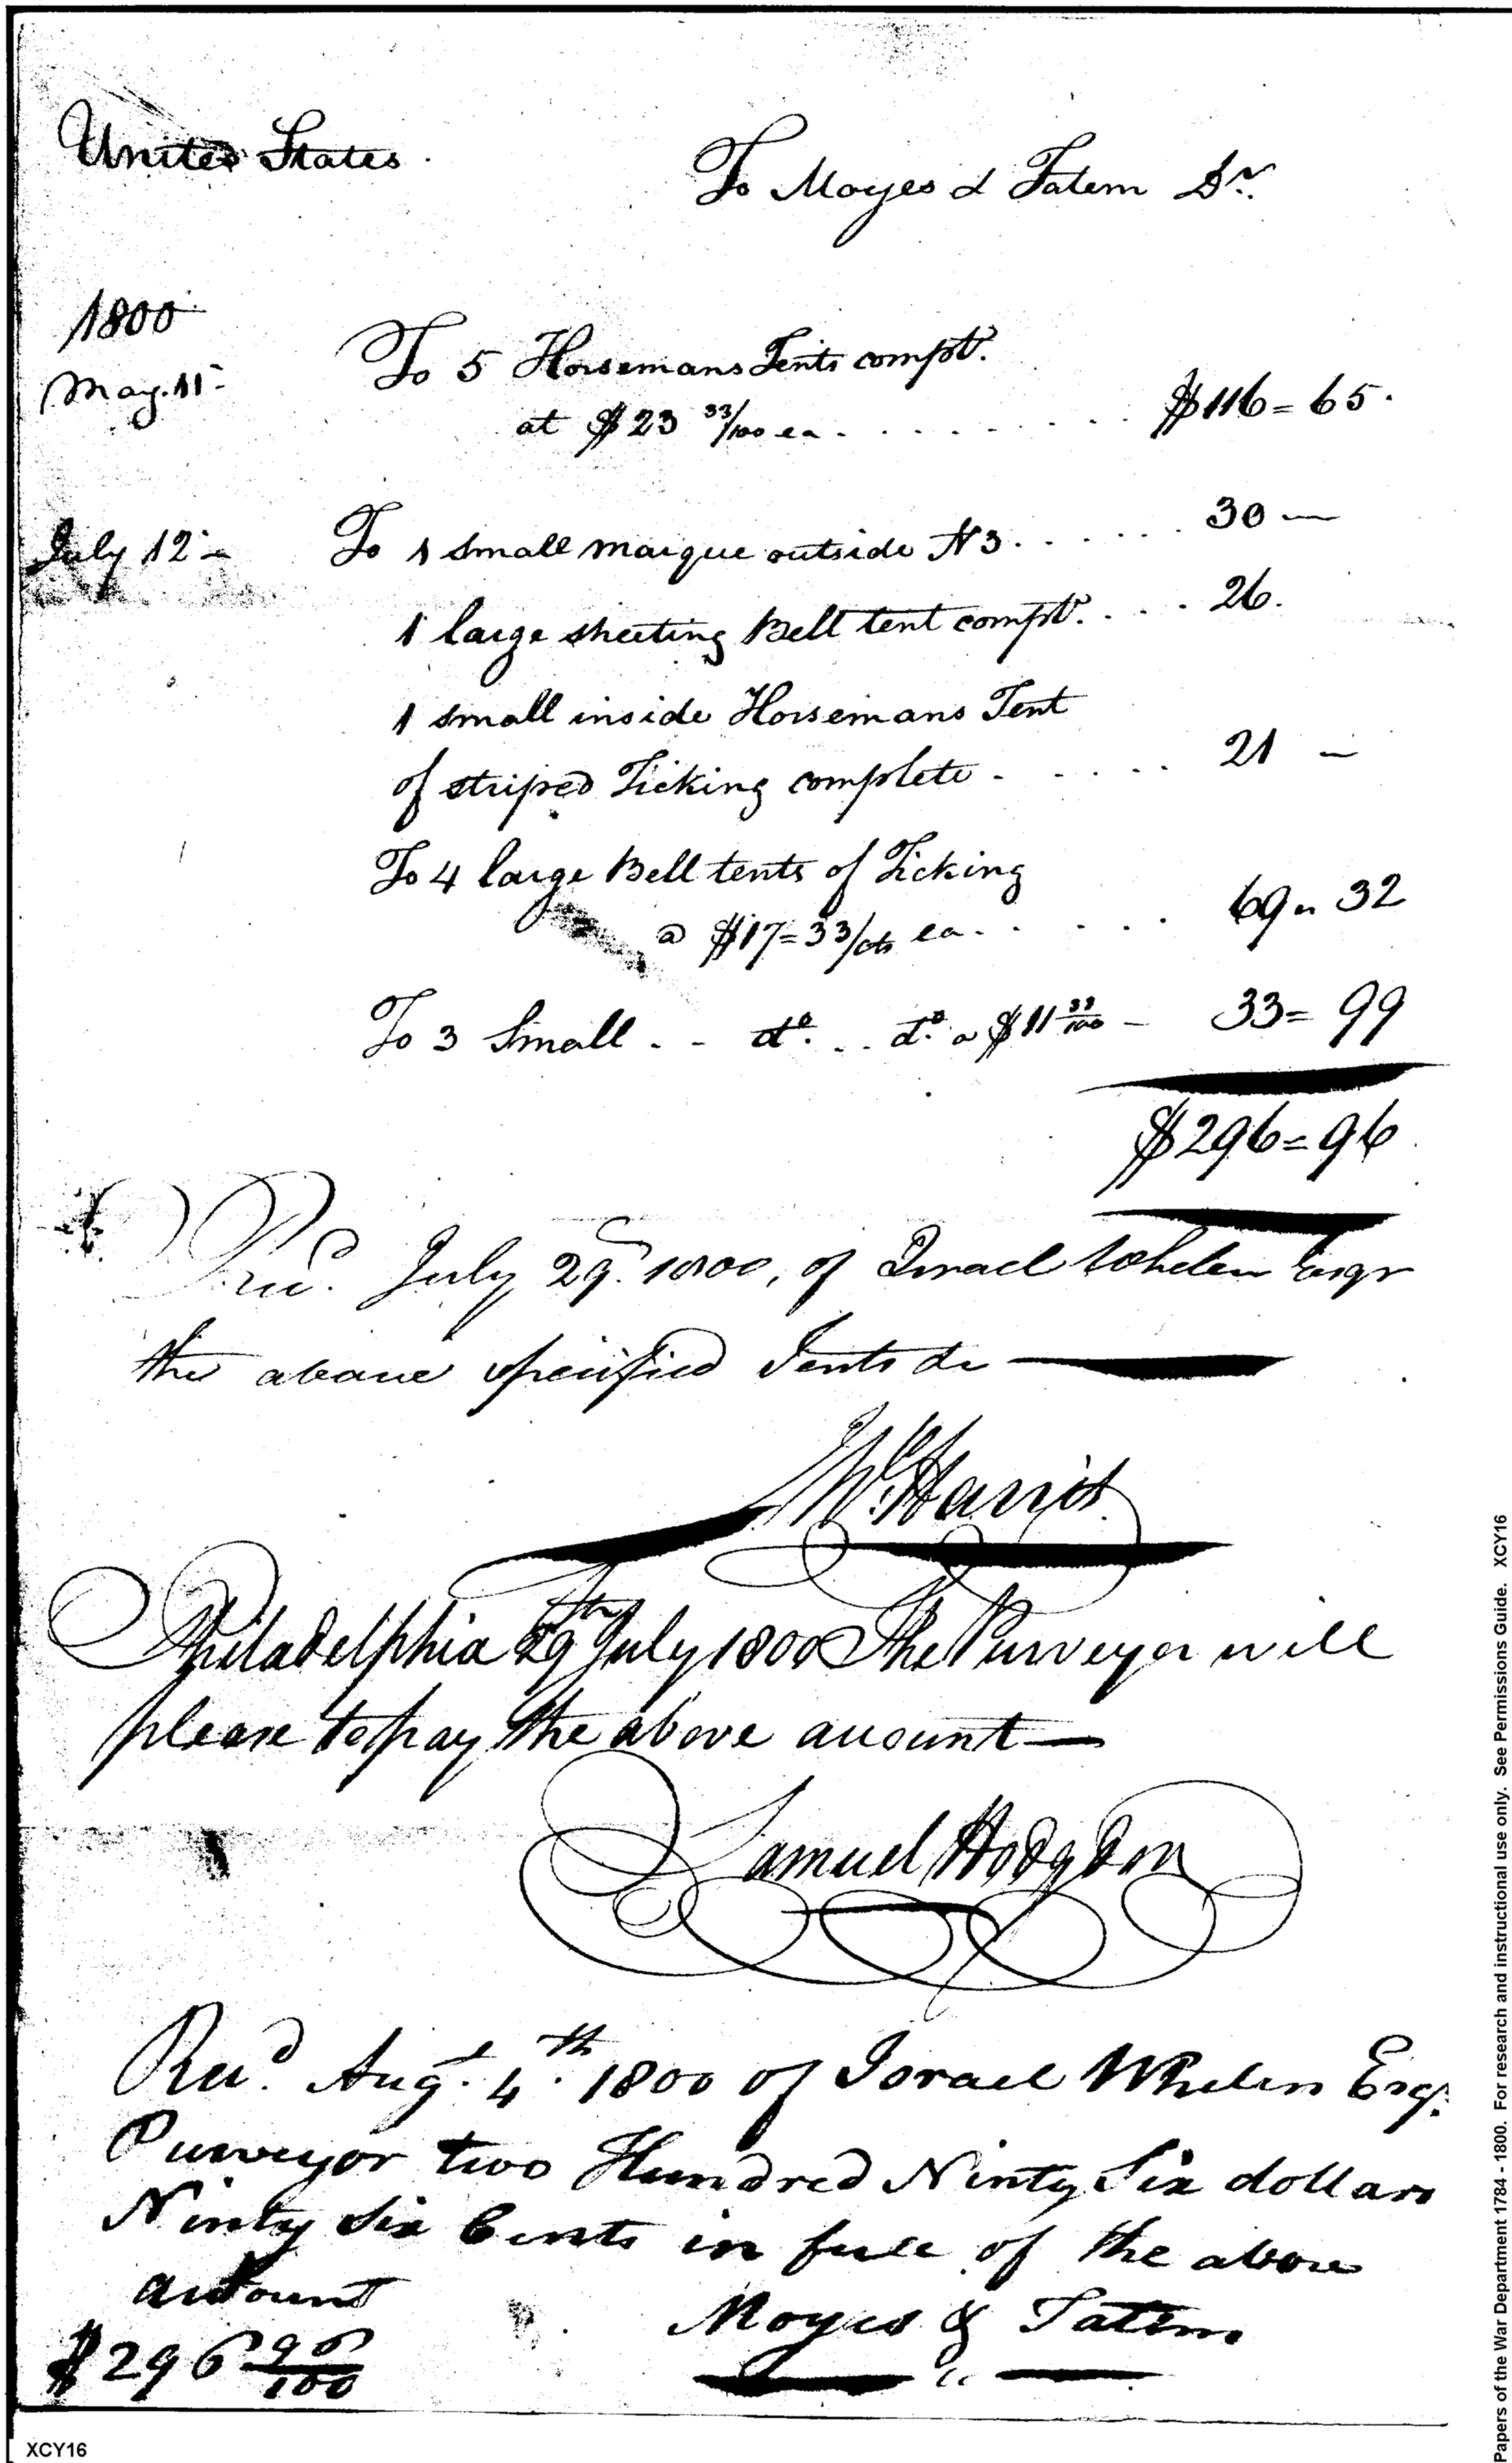 United States
To Moyes & Tatem Dr.
1800
May. 11 To 5 Horsemans Tents compt.
at $23 33/100 ea . . . . . . . . . $116=65.
July 12 To 1 small marque outside N3. . . . . . 30 —
1 large sheeting Bell tent compt. . . . 26.
1 small inside Horsemans Tent
of striped Ticking complete . . . . . 21 —
To 4 large Bell tents of Ticking
@ $17=33/cts ea . . . . . 69 " 32
To 3 Small . . do. . . do. a $11 33/100 - 33=99
$296=96
Recd. July 29. 1800, of Israel Whelen Esqr
the above specified Tents &c
Wm. Harris
Philadelphia 29th July 1800 The Purveyor will
please to pay the above account—
Samuel Hodgdon
Recd. Augt. 4th. 1800 of Israel Whelen Esqr.
Purveyor two Hundred Ninty Six dollars
Ninty Six Cents in full of the above
account
Moyes & Tatem
$296 96/100
XCY16
Papers of the War Department 1784 - 1800. For research and instructional use only. See Permissions Guide. XCY16